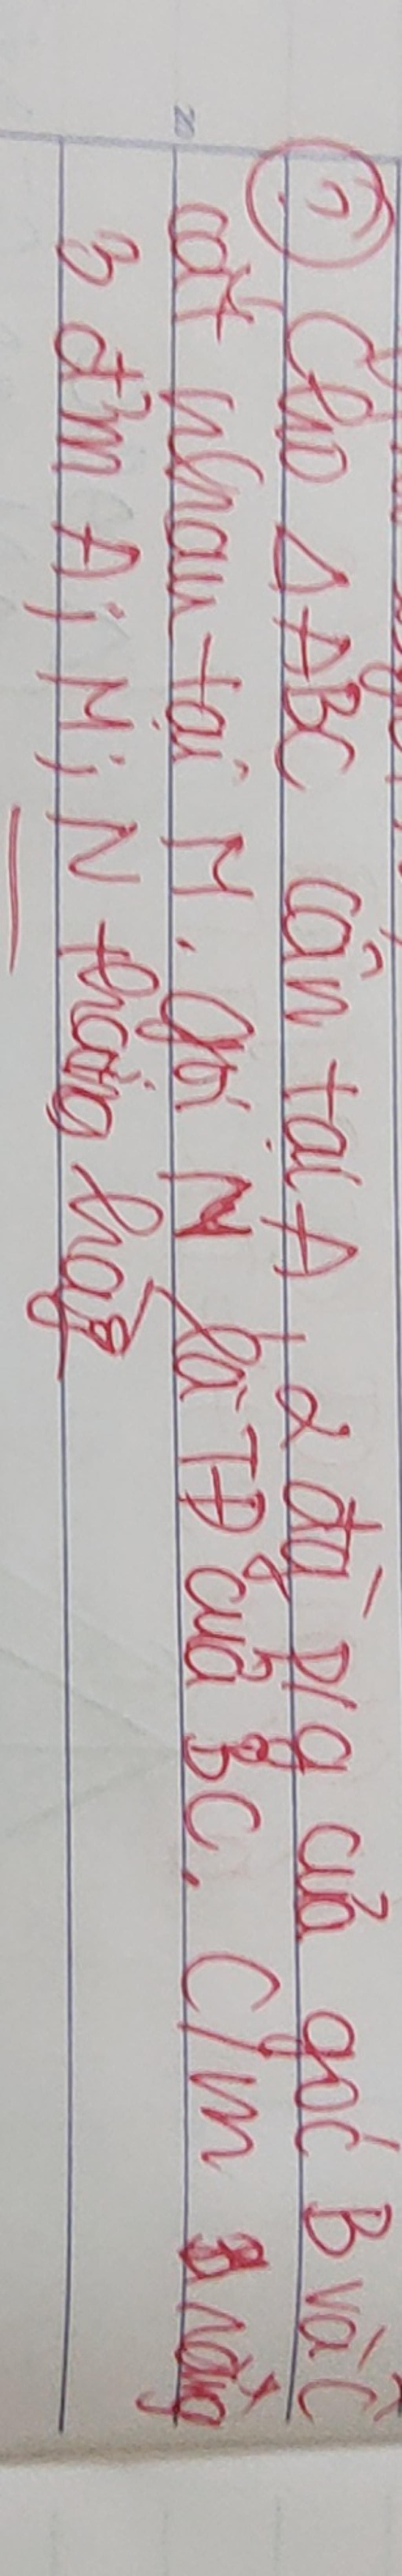 ② Cho △ABC cân tại A, 2 đg` p/g của góc B và C
cắt nhau tại M. gọi N là TĐ của BC. C/m rằng
3 điểm A; M; N thẳng hàg